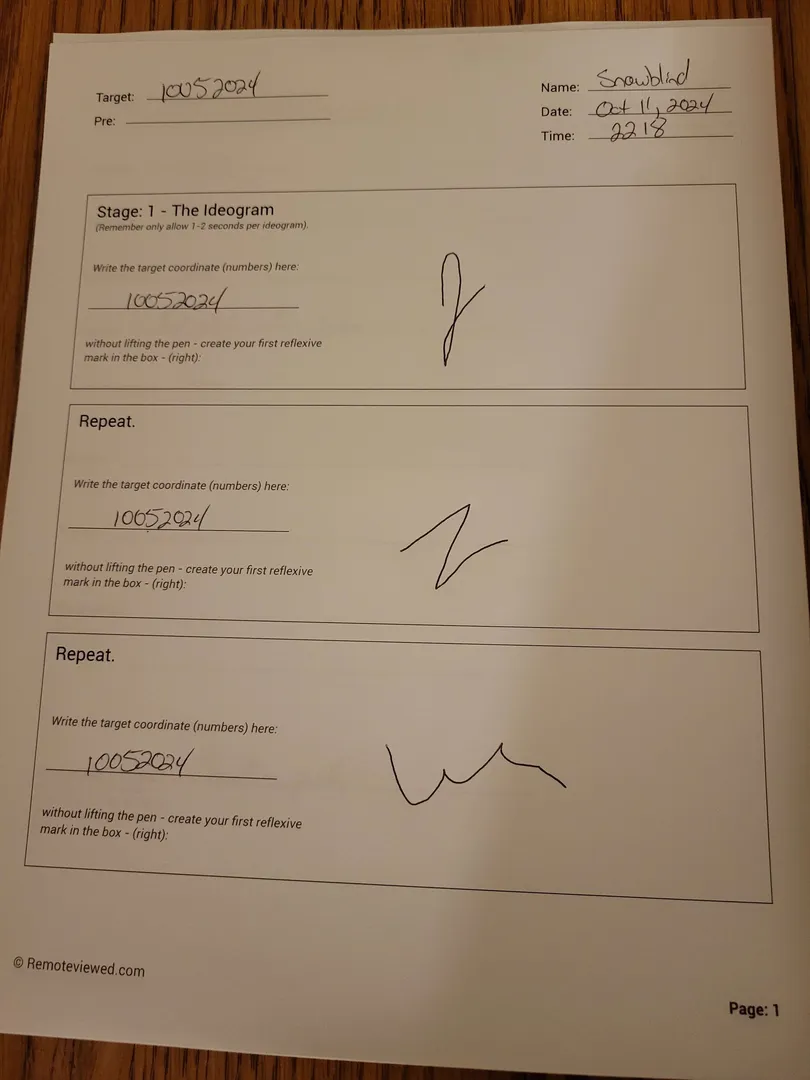 Target: 10052024
Pre:
Name: Snowblind
Date: Oct 11, 2024
Time: 2218
Stage: 1 - The Ideogram
(Remember only allow 1-2 seconds per ideogram).
Write the target coordinate (numbers) here:
10052024
without lifting the pen - create your first reflexive
mark in the box - (right):
Repeat.
Write the target coordinate (numbers) here:
10052024
without lifting the pen - create your first reflexive
mark in the box - (right):
Repeat.
Write the target coordinate (numbers) here:
10052024
without lifting the pen - create your first reflexive
mark in the box - (right):
© Remoteviewed.com
Page: 1